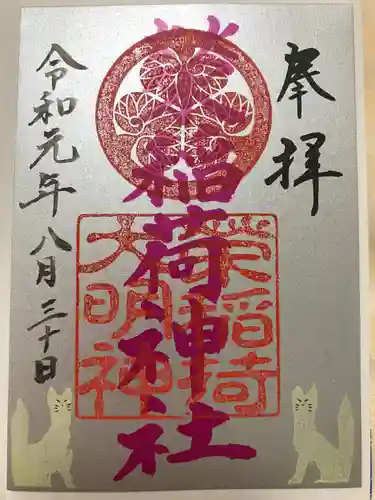 奉拝
稲荷神社
稲荷
大明神
令和元年八月三十日